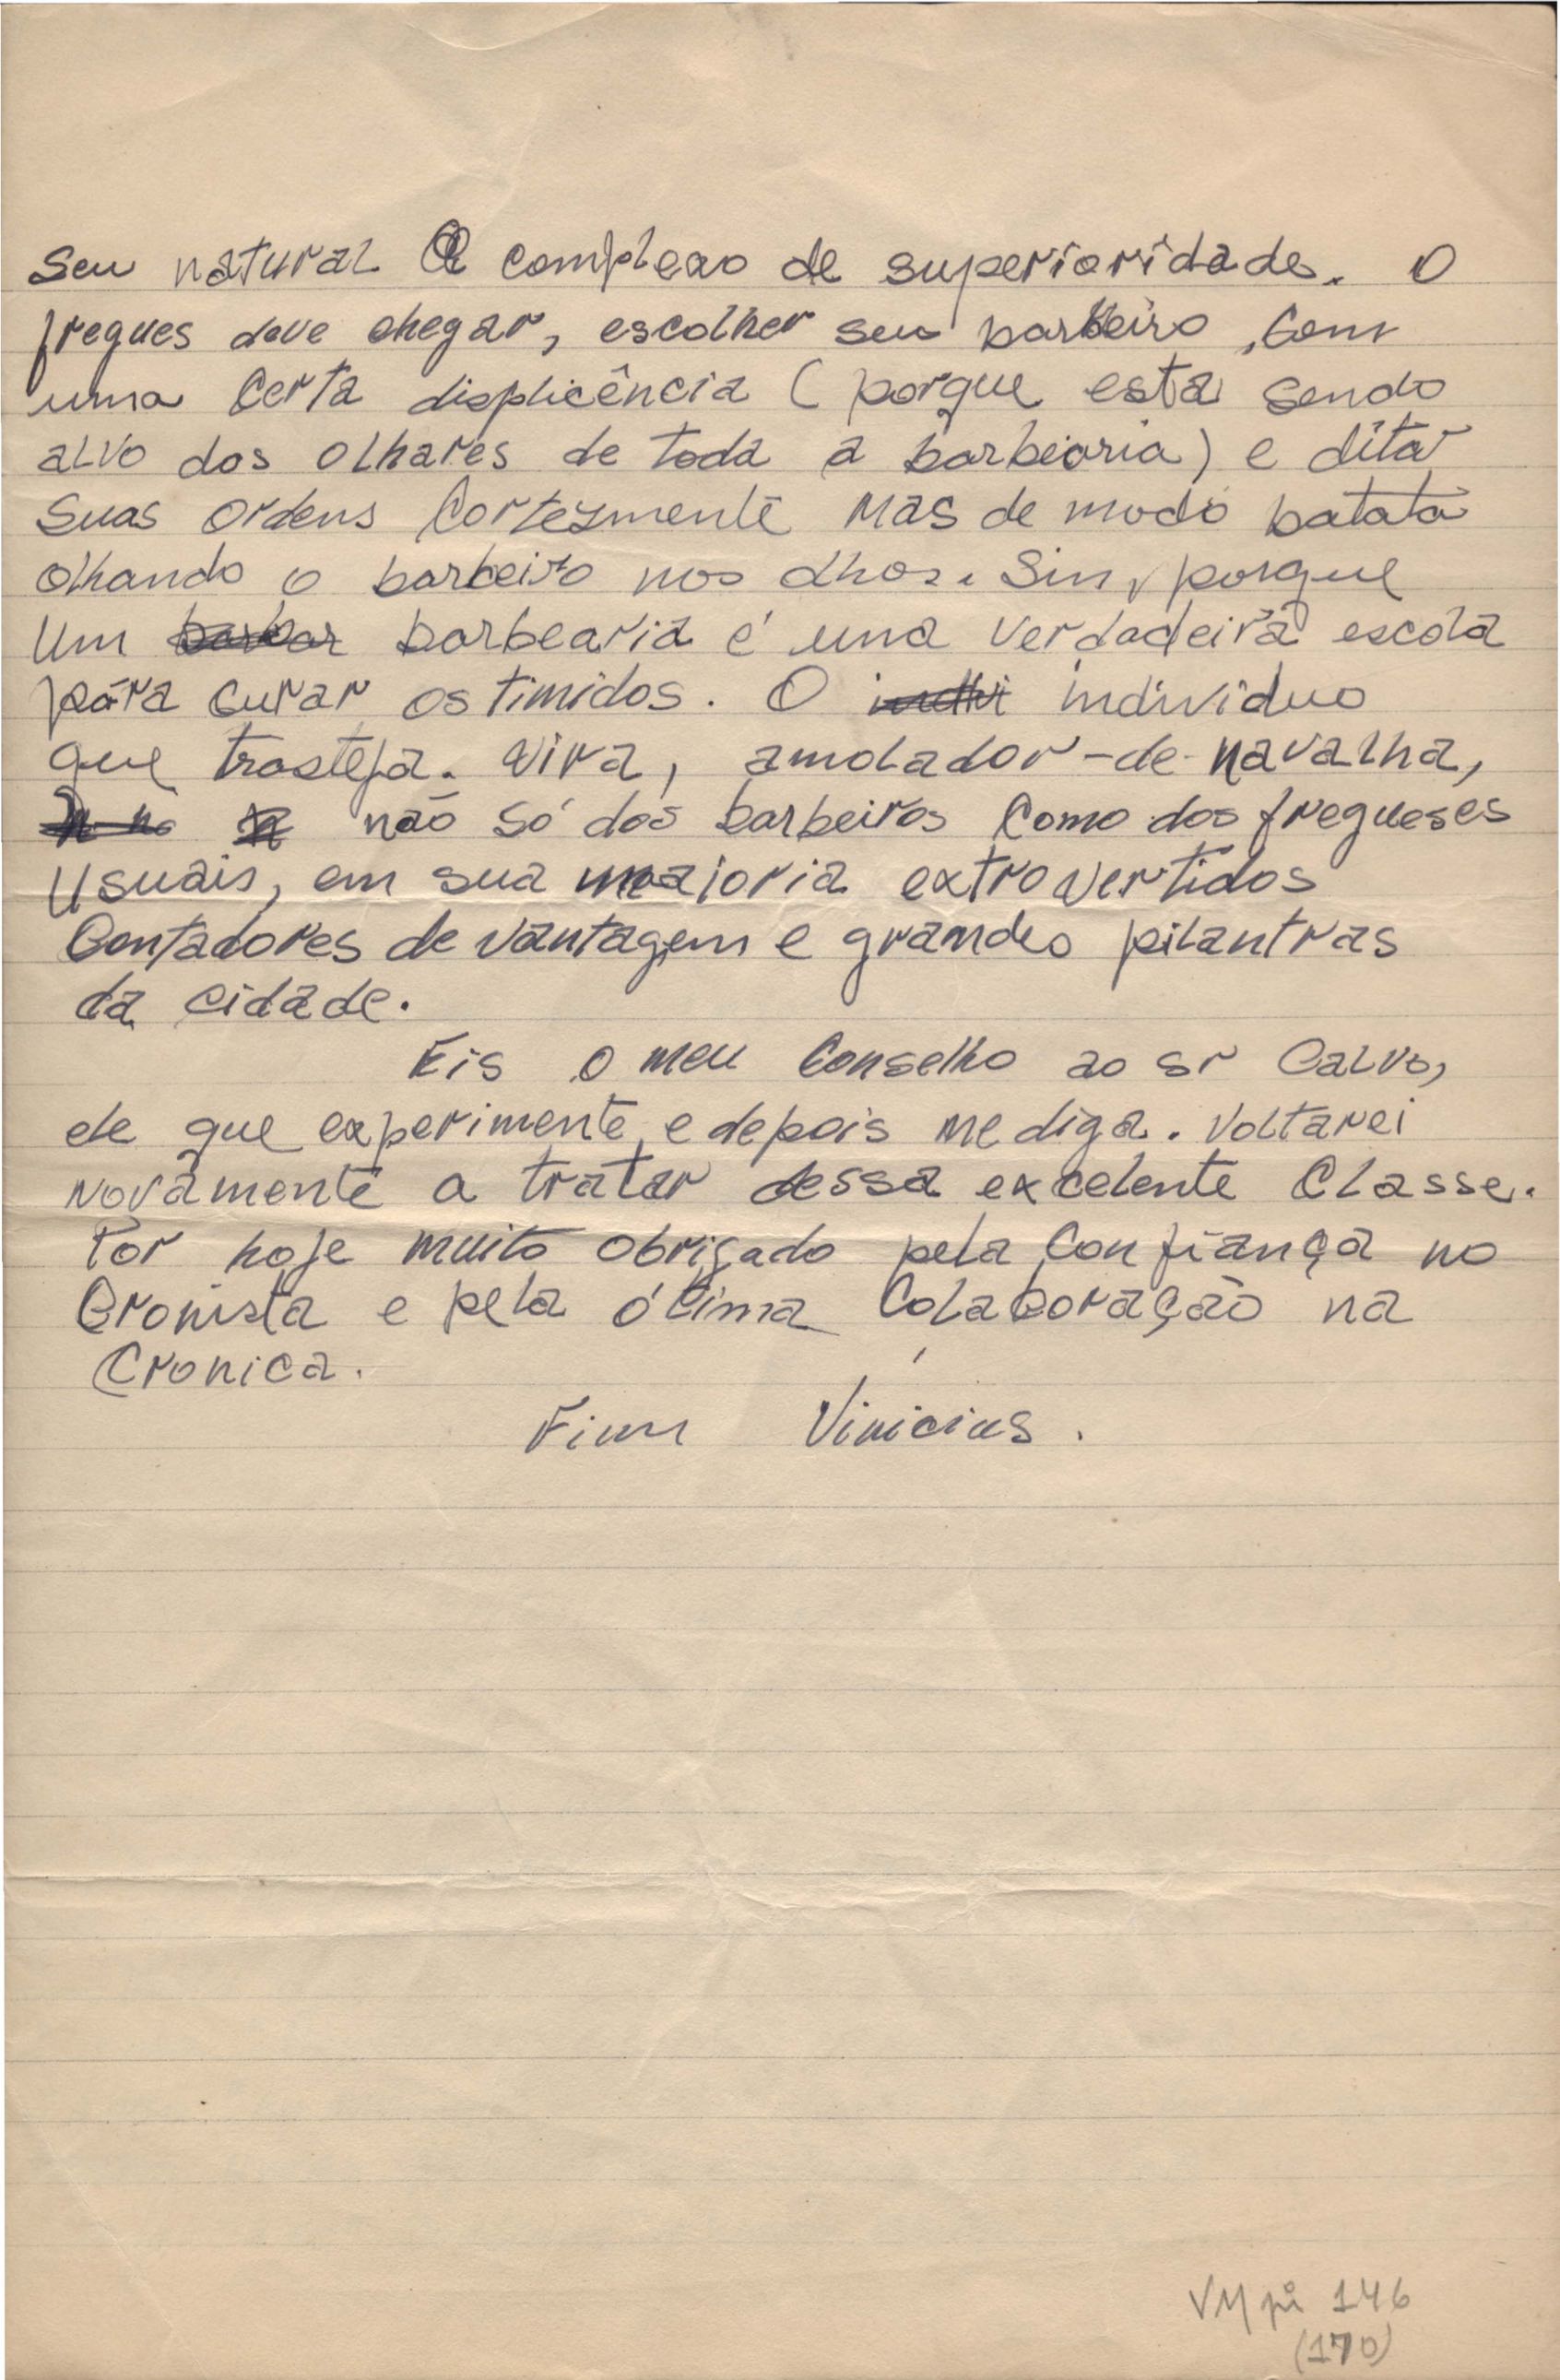 seu natural complexo de superioridade. O
fregues deve chegar, escolher seu barbeiro, com
uma certa displicência (porque esta sendo
alvo dos olhares de toda a barbearia) e ditar
suas ordens cortezmente mas de modo batata
olhando o barbeiro nos olhos. Sim, porque
um barbar barbearia é uma verdadeira escola
para curar os timidos. O indivi individuo
que trasteja. vira, amolador-de-navalha,
não só dos barbeiros como dos fregueses
usuais, em sua maioria extrovertidos
contadores de vantagem e grandes pilantras
da cidade.
Eis o meu conselho ao sr Calvo,
ele que experimente, e depois me diga. Voltarei
novamente a tratar dessa excelente classe.
Por hoje muito obrigado pela confiança no
cronista e pela ótima colaboração na
cronica.
Fim Vinicius.
VM pi 146
(170)